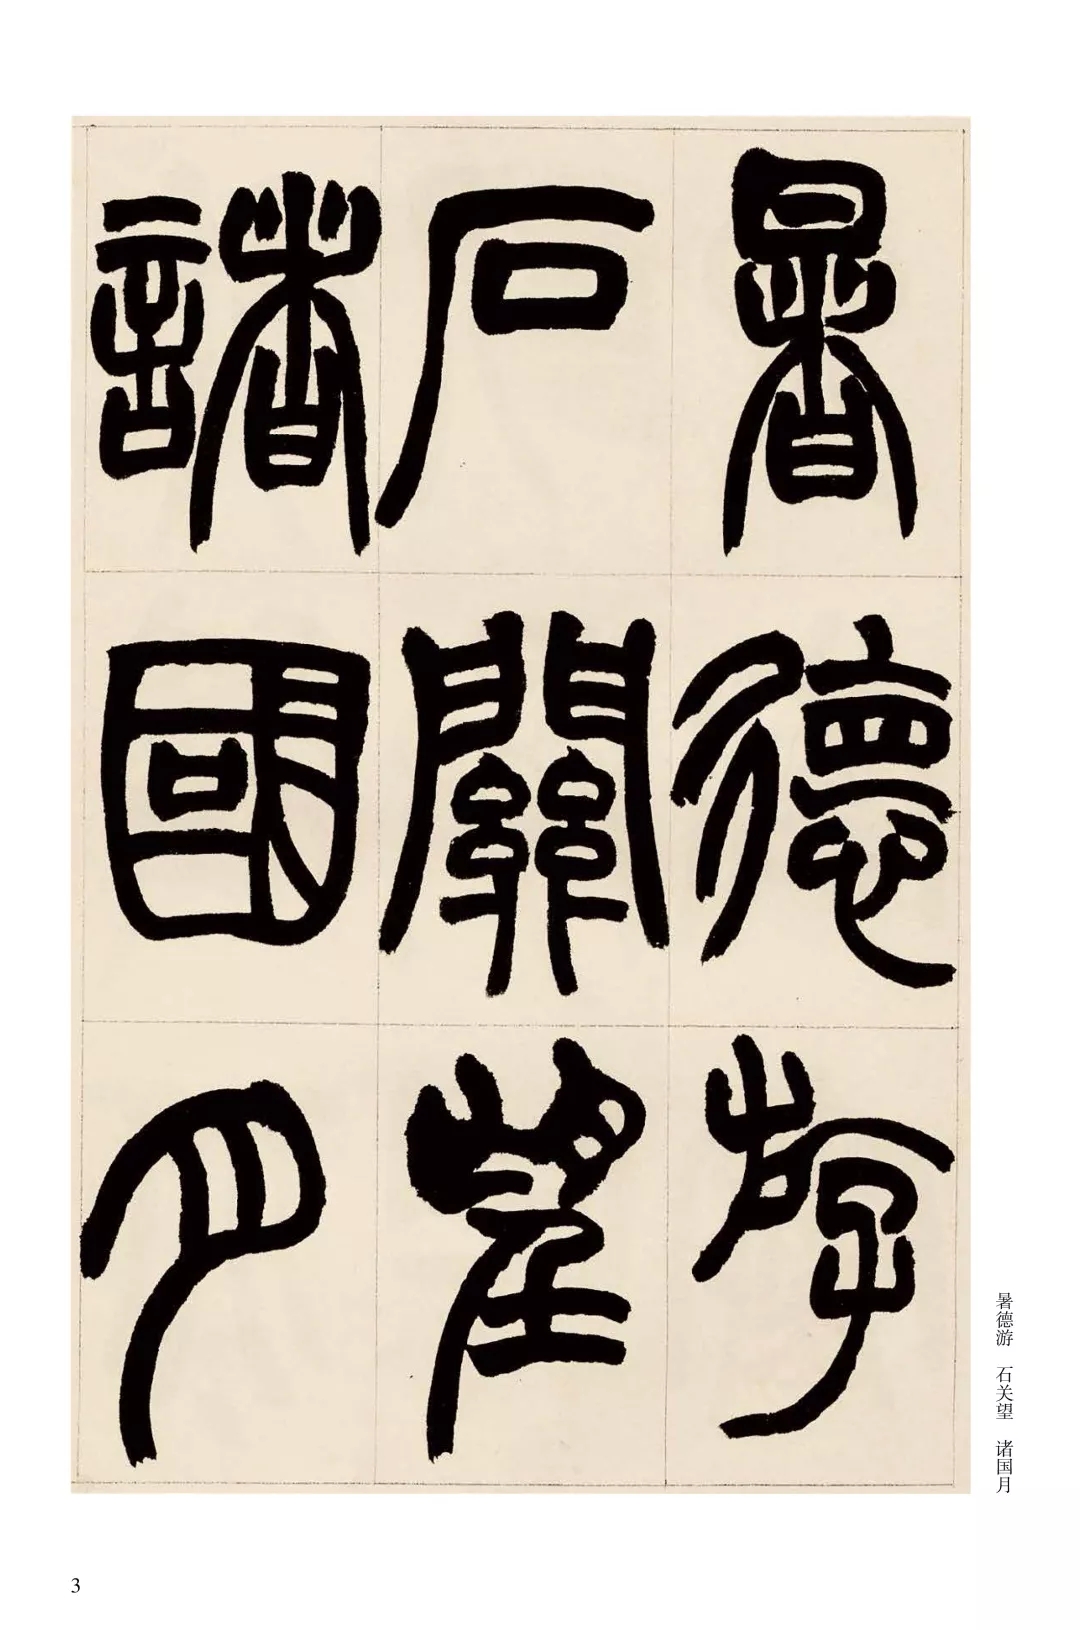 暑德游
石關望
諸國月
暑德游 石关望 诸国月
3